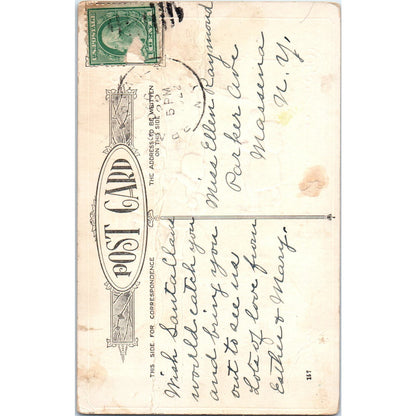 POST CARD
THIS SIDE FOR CORRESPONDENCE
THE ADDRESS TO BE WRITTEN
ON THIS SIDE
U.S. POSTAGE
5 PM
N.Y.
Wish Santa Claus
would catch you
and bring you
out to see us
Lots of love from
Esther & Mary.
Miss Ellen Raymond
Parker Ave
Massena
N. Y.
157